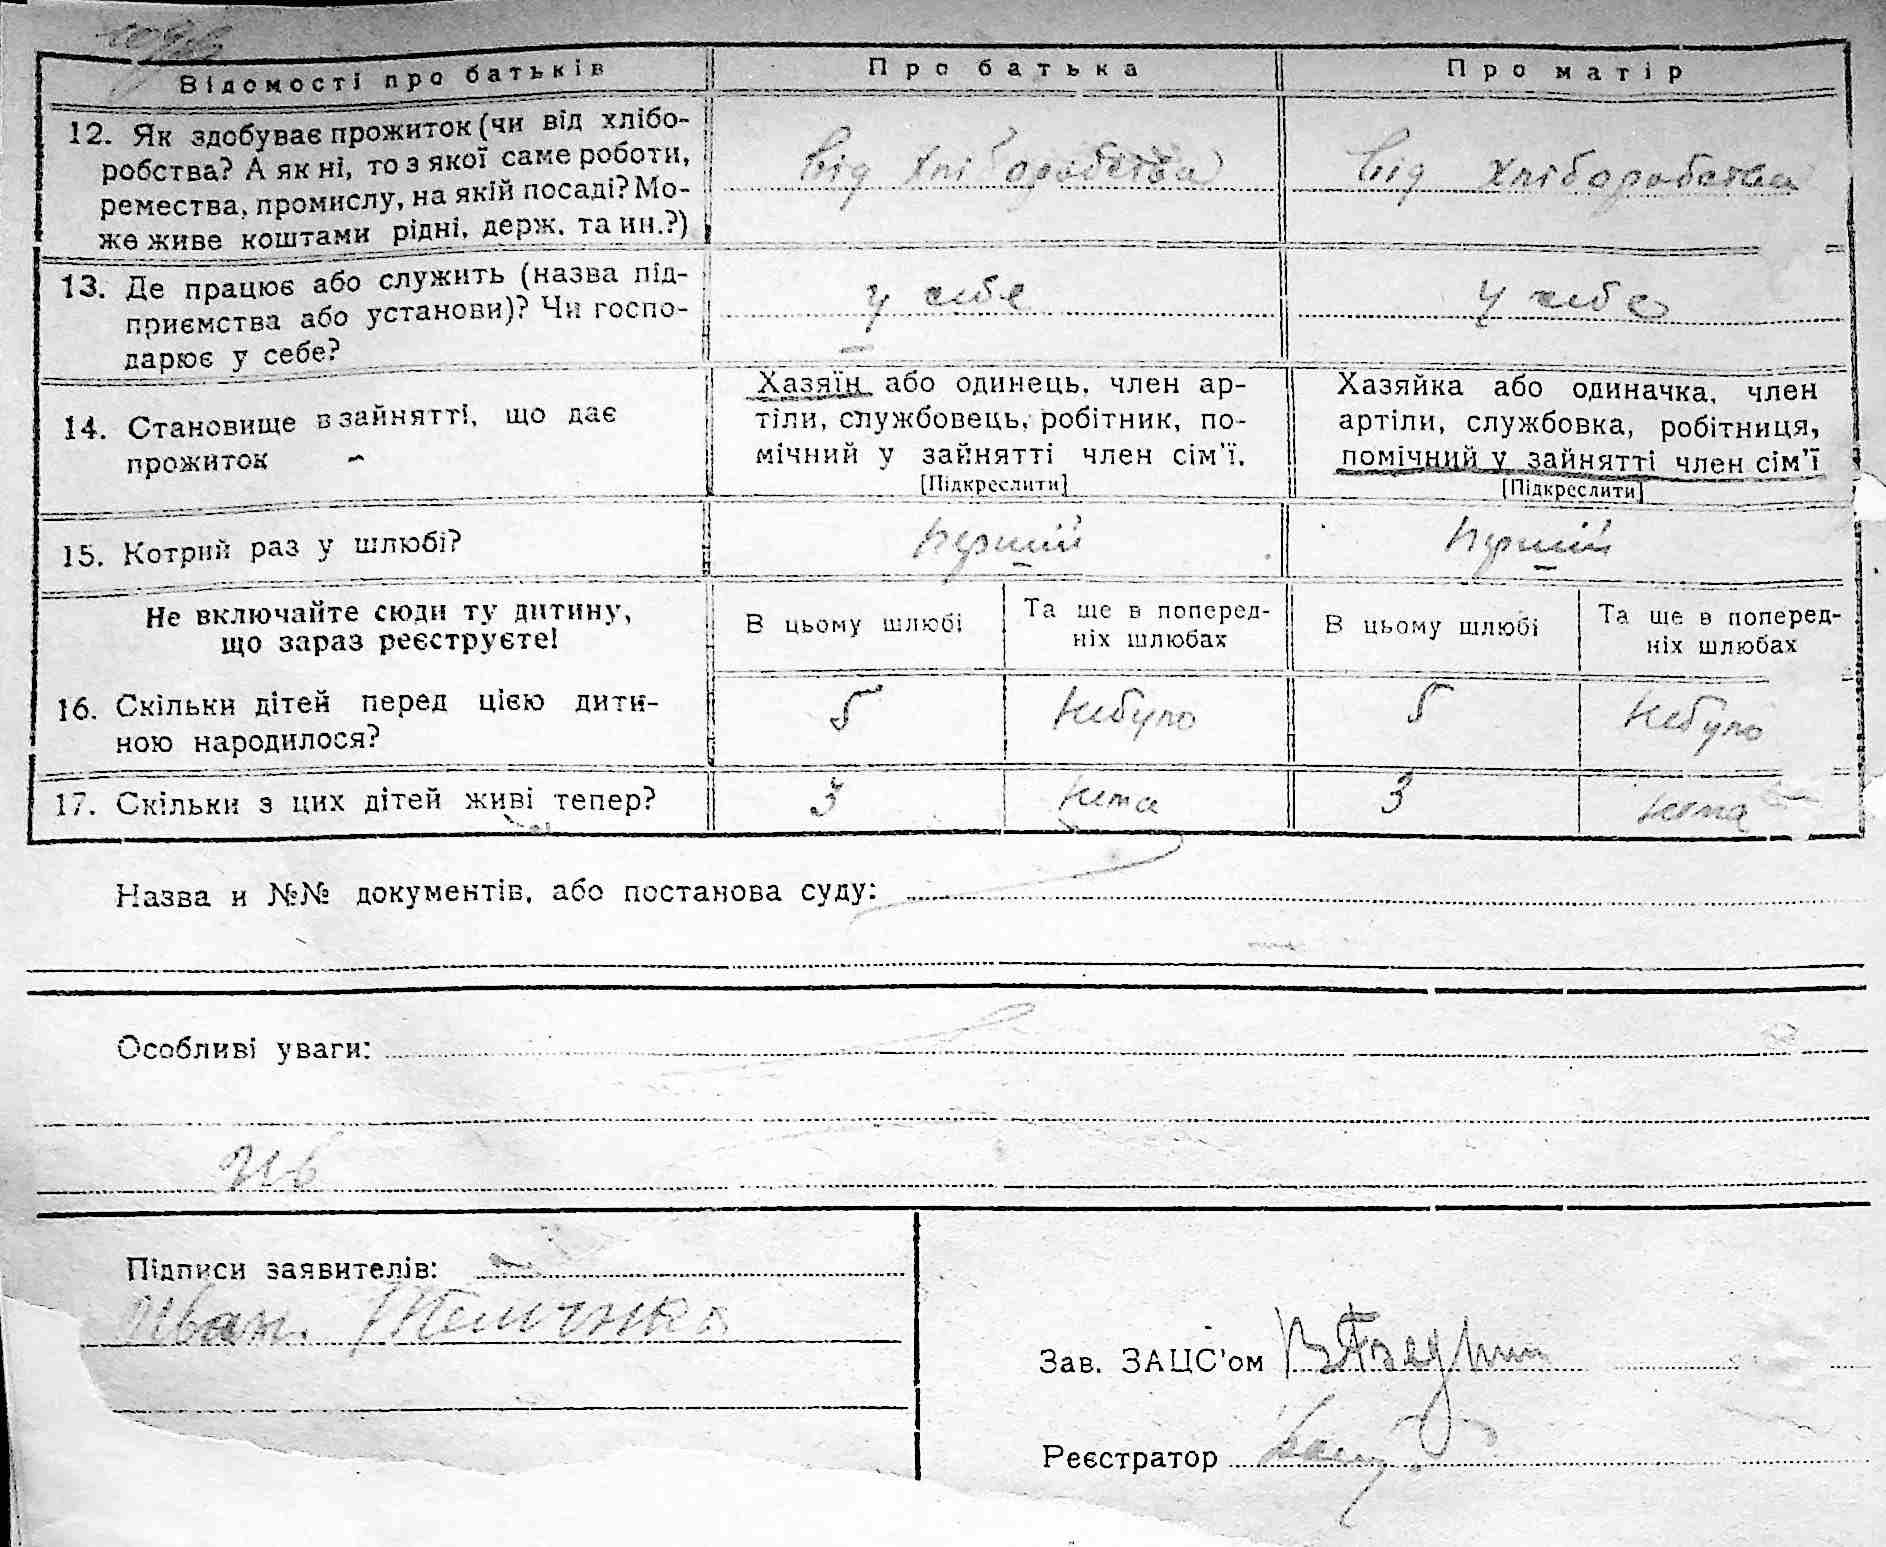 Відомості про батьків
Про батька
Про матір
12. Як здобуває прожиток (чи від хлібо-
робства? А як ні, то з якої саме роботи,
ремества, промислу, на якій посаді? Мо-
же живе коштами рідні, держ. та ин.?)
від хліборобства
від хліборобства
13. Де працює або служить (назва під-
приємства або установи)? Чи госпо-
дарює у себе?
у себе
у себе
14. Становище в зайнятті, що дає
прожиток
Хазяїн або одинець, член ар-
тіли, службовець, робітник, по-
мічний у зайнятті член сім'ї.
[Підкреслити]
Хазяйка або одиначка, член
артіли, службовка, робітниця,
помічний у зайнятті член сім'ї
[Підкреслити]
15. Котрий раз у шлюбі?
перший
перший
Не включайте сюди ту дитину,
що зараз реєструєте!
В цьому шлюбі
Та ще в поперед-
ніх шлюбах
В цьому шлюбі
Та ще в поперед-
ніх шлюбах
16. Скільки дітей перед цією дити-
ною народилося?
5
небуло
5
небуло
17. Скільки з цих дітей живі тепер?
3
нема
3
нема
Назва и №№ документів, або постанова суду:
Особливі уваги:
Підписи заявителів:
Иван
Зав. ЗАЦС'ом
Реєстратор